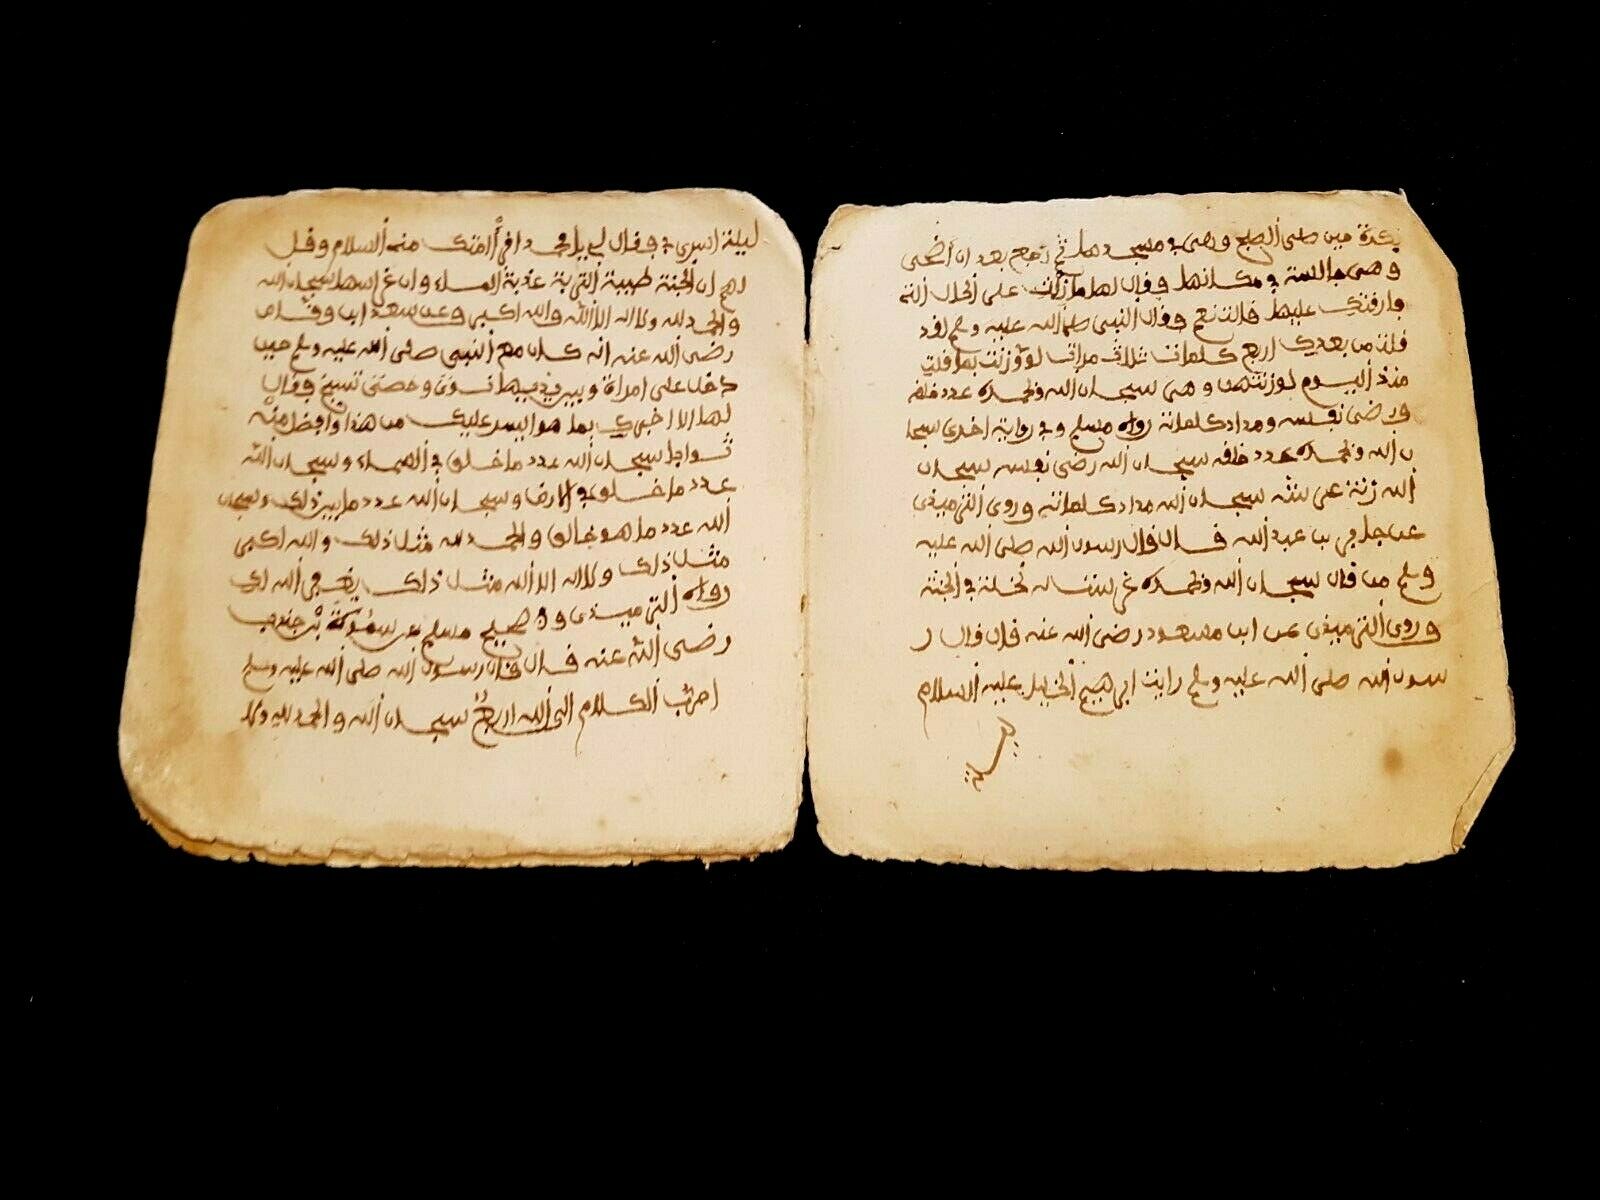 بكرة حين صلى الصبح وهي في مسجدها ثم رجع بعد ان اضحى
وهي جالسة في مكانها فقال لها ما زلت على الحال التي
فارفتك عليها فالت نعم فقال النبي صلى الله عليه وسلم لفد
فلت من بعدك اربع كلمات ثلاث مرات لو وزنت بما فلت
منذ اليوم لوزنتهن وهي سبحان الله وبحمده عدد خلفه
ورضى نفسه ومداد كلماته رواه مسلم وفي رواية اخرى سبحا
ن الله وبحمده عدد خلفه سبحان الله رضى نفسه سبحان
الله زنة عرشه سبحان الله مداد كلماته وروى الترميذي
عن جابر بن عبد الله فال فال رسول الله صلى الله عليه
وسلم من فال سبحان الله وبحمده غرست له نخلة في الجنة
وروى الترميذي عن ابن مسعود رضي الله عنه فال فال ر
سول الله صلى الله عليه وسلم رايت ابرهيم الخليل عليه السلام
ليلة
ليلة اسري بي فقال لي يا محمد افرأ امتك منى السلام وفل
لهم ان الجنة طيبة التربة عذبة الماء وان غراسها سبحان الله
والحمد لله ولا اله الا الله والله اكبر وعن سعد ابن وفاص
رضي الله عنه انه كان مع النبي صلى الله عليه وسلم حين
دخل على امراة وبين يديها نوى وحصى تسبح فقال
لها الا اخبرك بما هو ايسر عليك من هذا وافضل منه
ثوابا سبحان الله عدد ما خلق في السماء وسبحان الله
عدد ما خلق في الارض وسبحان الله عدد ما بين ذلك وسبحان
الله عدد ما هو خالق والحمد لله مثل ذلك والله اكبر
مثل ذلك ولا اله الا الله مثل ذلك يفرج الله لك
رواه الترميذي و صحيح مسلم عن سمرة بن جندب
رضي الله عنه فال فال رسول الله صلى الله عليه وسلم
احب الكلام الى الله اربع سبحان الله والحمد لله ولا